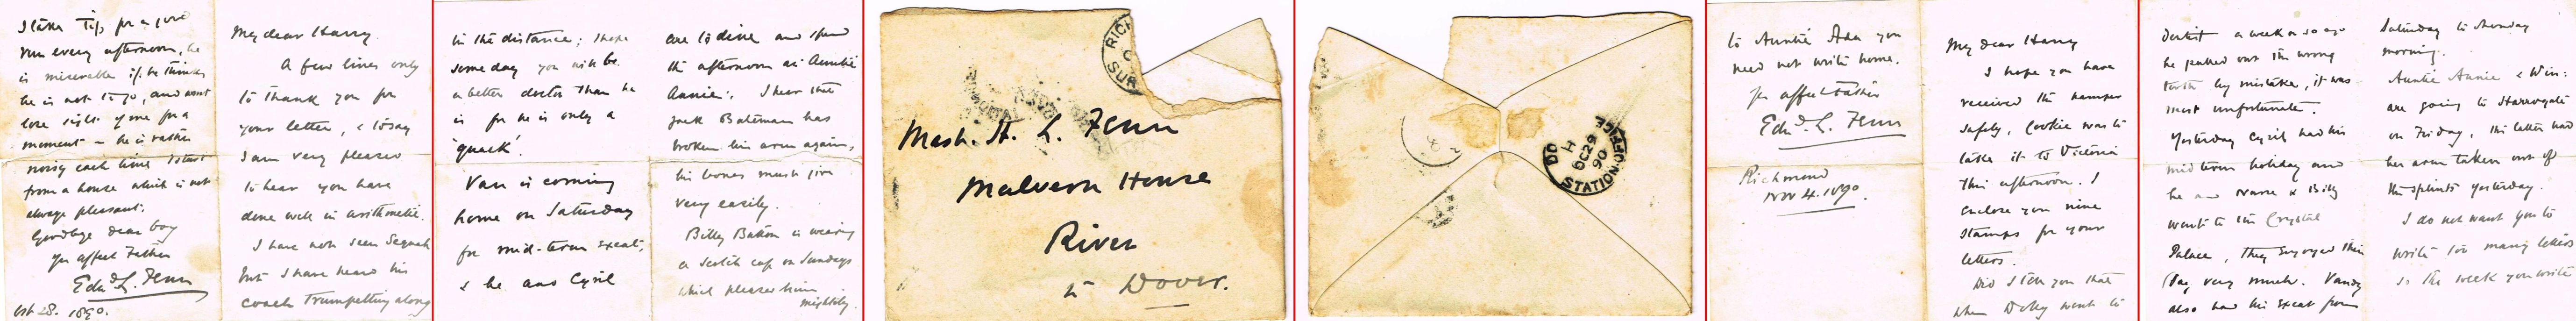 I take Tip for a good
run every afternoon, he
is miserable if he thinks
he is not to go, and won't
lose sight of me for a
moment - he is rather
noisy each time I start
from a house which is not
always pleasant.
Goodbye dear boy
Yr affect Father
Edwd. L. Fenn
Oct 28. 1890.
My dear Harry.
A few lines only
to thank you for
your letter, & to say
I am very pleased
to hear you have
done well in arithmetic.
I have not seen Sequah
but I have heard his
coach trumpetting along
in the distance; I hope
some day you will be
a better doctor than he
is for he is only a
'quack'.
Van is coming
home on Saturday
for mid-term exeat,
& he and Cyril
are to dine and spend
the afternoon at Auntie
Annie's. I hear that
Jack Bateman has
broken his arm again,
his bones must give
very easily.
Billy Button is wearing
a Scotch cap on Sundays
which pleases him
mightily.
RICH
C
SUR
Mast. H. L. Fenn
Malvern House
River
nr Dover.
DO
H
OC 29
90
STATION OFFICE
to Auntie Ada you
need not write home.
Yr affect Father
Edwd. L. Fenn
Richmond
Nov 4. 1890.
My dear Harry
I hope you have
received the hamper
safely, Cookie was to
take it to Victoria
this afternoon. I
enclose you nine
stamps for your
letters.
Did I tell you that
when Dolly went to
dentist a week or so ago
he pulled out the wrong
tooth by mistake, it was
most unfortunate.
Yesterday Cyril had his
mid term holiday and
he and Nurse & Billy
went to the Crystal
Palace, they enjoyed their
day very much. Vandy
also had his exeat from
Saturday to Monday
morning.
Auntie Annie & Win:
are going to Harrogate
on Friday, the latter had
her arm taken out of
the splints yesterday.
I do not want you to
write too many letters
so the week you write